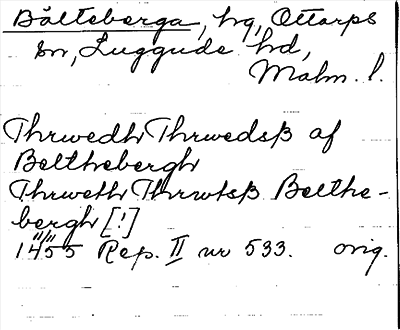 Bälteberga, hg, Ottarps
sn, Luggude hd,
Malm. l.
Thrwedh Thrwedsß af
Belthebergh
Thrweth Thrwtsß Belthe-
bergh [!]
1455 Rep. II nr 533. orig.